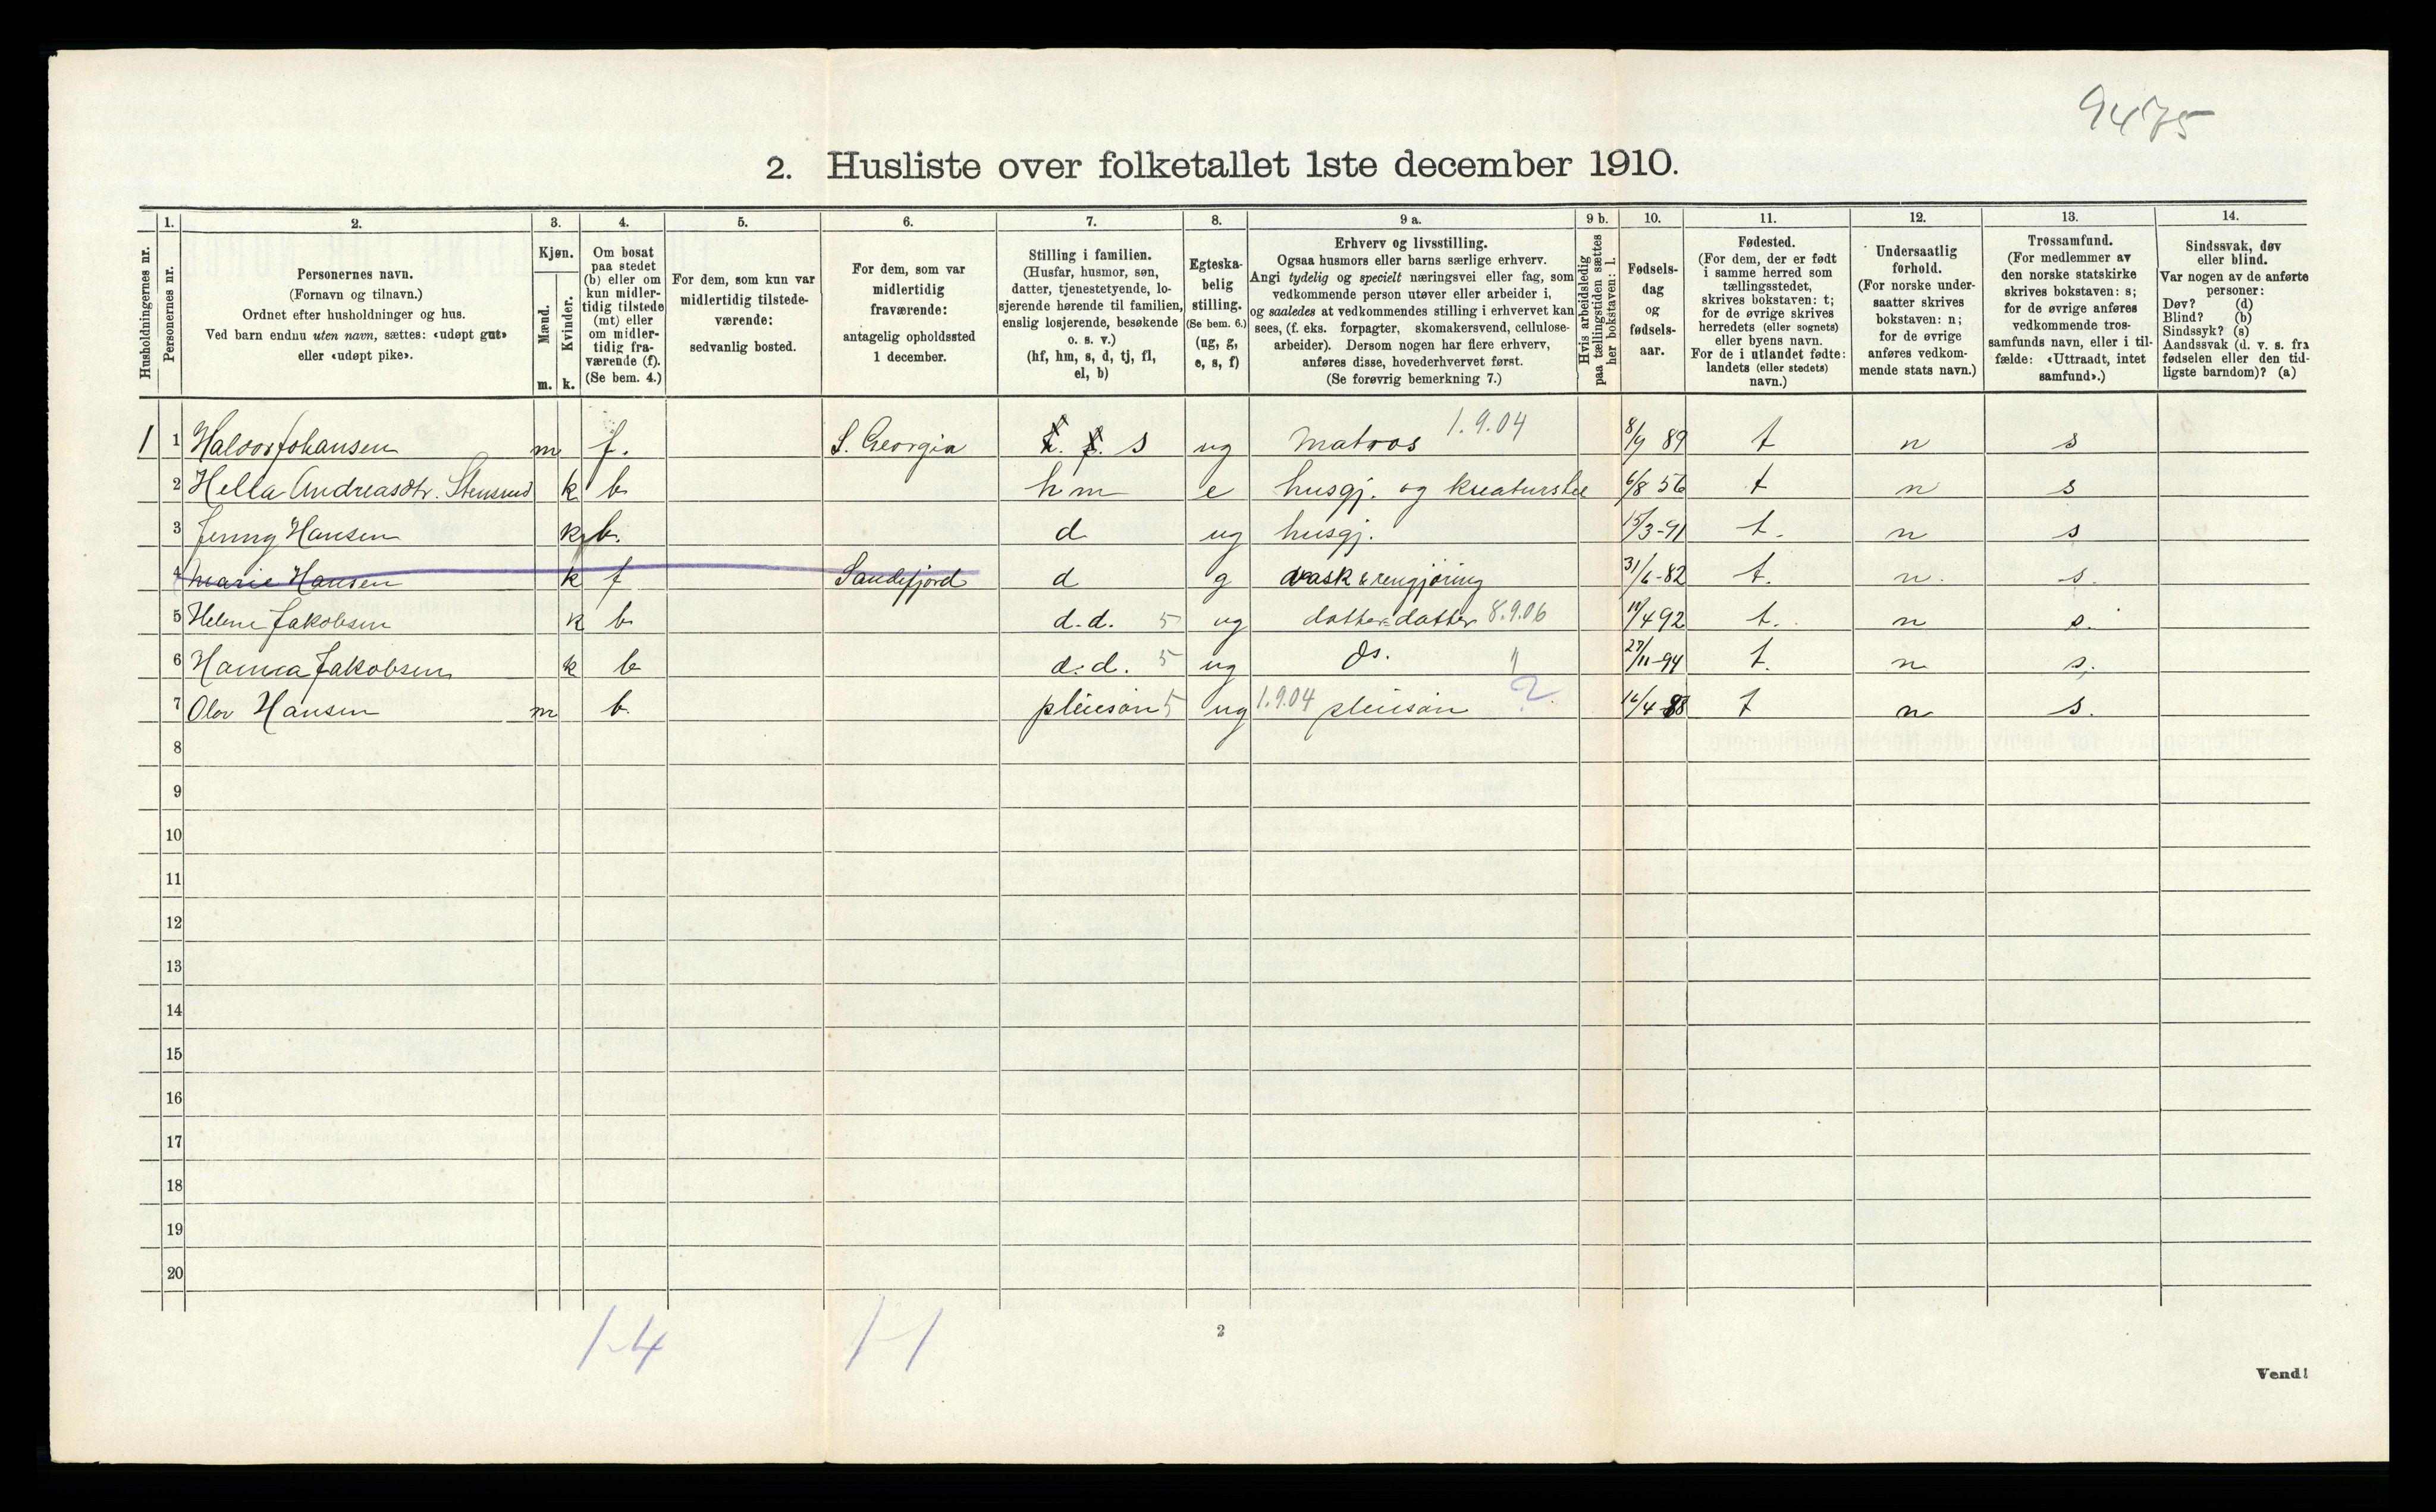 9475
2. Husliste over folketallet 1ste december 1910.
Husholdningernes nr.
1.
Personernes nr.
2.
Personernes navn.
(Fornavn og tilnavn.)
Ordnet efter husholdninger og hus.
Ved barn endnu uten navn, sættes: «udøpt gut»
eller «udøpt pike».
3.
Kjøn.
Mænd.
Kvinder.
m. k.
4.
Om bosat
paa stedet
(b) eller om
kun midler-
tidig tilstede
(mt) eller
om midler-
tidig fra-
værende (f).
(Se bem. 4.)
5.
For dem, som kun var
midlertidig tilstede-
værende:
sedvanlig bosted.
6.
For dem, som var
midlertidig
fraværende:
antagelig opholdssted
1 december.
7.
Stilling i familien.
(Husfar, husmor, søn,
datter, tjenestetyende, lo-
sjerende hørende til familien,
enslig losjerende, besøkende
o. s. v.)
(hf, hm, s, d, tj, fl,
el, b)
8.
Egteska-
belig
stilling.
(Se bem. 6.)
(ug, g,
e, s, f)
9 a.
Erhverv og livsstilling.
Ogsaa husmors eller barns særlige erhverv.
Angi tydelig og specielt næringsvei eller fag, som
vedkommende person utøver eller arbeider i,
og saaledes at vedkommendes stilling i erhvervet kan
sees, (f. eks. forpagter, skomakersvend, cellulose-
arbeider). Dersom nogen har flere erhverv,
anføres disse, hovederhvervet først.
(Se forøvrig bemerkning 7.)
9 b.
Hvis arbeidsledig
paa tællingstiden sættes
her bokstaven: l.
10.
Fødsels-
dag
og
fødsels-
aar.
11.
Fødested.
(For dem, der er født
i samme herred som
tællingsstedet,
skrives bokstaven: t;
for de øvrige skrives
herredets (eller sognets)
eller byens navn.
For de i utlandet fødte:
landets (eller stedets)
navn.)
12.
Undersaatlig
forhold.
(For norske under-
saatter skrives
bokstaven: n;
for de øvrige
anføres vedkom-
mende stats navn.)
13.
Trossamfund.
(For medlemmer av
den norske statskirke
skrives bokstaven: s;
for de øvrige anføres
vedkommende tros-
samfunds navn, eller i til-
fælde: «Uttraadt, intet
samfund».)
14.
Sindssvak, døv
eller blind.
Var nogen av de anførte
personer:
Døv? (d)
Blind? (b)
Sindssyk? (s)
Aandssvak (d. v. s. fra
fødselen eller den tid-
ligste barndom)? (a)
1 1 Haldor Johansen m f. S. Georgia s ug Matros 1.9.04 89 t n s
2 Hella Andreasdtr. Stensrud k b hm e husgj. og kreaturstel 6/8 56 t n s
3 Jenny Hansen k b. d ug husgj. 15/3-91 t. n s
4 Marie Hansen k f Sandefjord d g vask & rengjøring 31/6-82 t. n. s.
5 Helene Jakobsen k b d.d. 5 ug datterdatter 8.9.06 /4 92 t. n s.
6 Hanna Jakobsen k b d.d. 5 ug ds. 27/11-94 t. n s.
7 Olav Hansen m b. pleiesøn 5 ug 1.9.04 pleiesøn 2 16/4 88 t n s.
8
9
10
11
12
13
14
15
16
17
18
19
20
1-4 1-1
2
Vend!